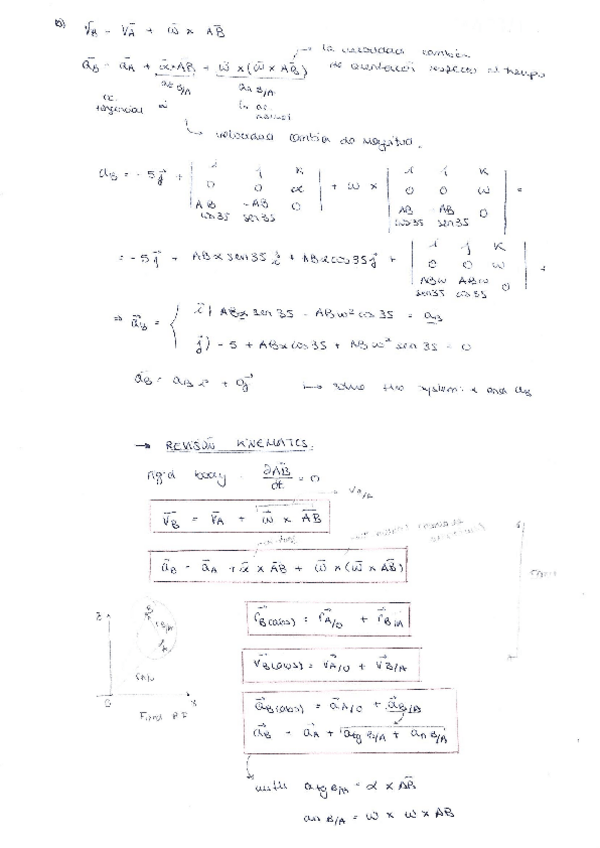 b) v⃗B = v⃗A + ω⃗ x AB⃗
a⃗B = a⃗A + α⃗ x AB⃗ + ω⃗ x (ω⃗ x AB⃗)
la velocidad cambia
de orientación respecto al tiempo
a tg B/A
an B/A
ac. tangencial
ac. normal
velocidad cambia de magnitud.
aB = -5j⃗ + | i j k ; 0 0 α ; AB cos35 -AB sen35 0 | + ω x | i j k ; 0 0 ω ; AB cos35 -AB sen35 0 | =
= -5j⃗ + ABα sen35 i⃗ + ABα cos35 j⃗ + | i j k ; 0 0 ω ; ABω sen35 ABω cos35 0 | =
⇒ a⃗B = { i⃗) ABα sen35 - ABω² cos35 = aB
j⃗) -5 + ABα cos35 + ABω² sen35 = 0
a⃗B = aB i⃗ + 0j⃗ ↳ solve the system: α and aB
→ REVISION KINEMATICS.
rigid body ∂AB⃗/dt = 0
VB/A
v⃗B = v⃗A + ω⃗ x AB⃗
a⃗B = a⃗A + α⃗ x AB⃗ + ω⃗ x (ω⃗ x AB⃗)
r⃗B(abs) = r⃗A/O + r⃗B/A
v⃗B(abs) = v⃗A/O + v⃗B/A
a⃗B(abs) = a⃗A/O + a⃗B/A
a⃗B = a⃗A + a tg B/A + an B/A
B
A
O
x
Fixed RF
with a tg B/A = α x AB⃗
an B/A = ω x ω x AB